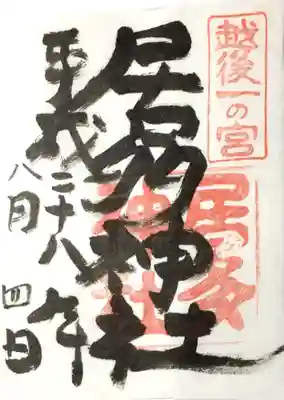 越後一の宮
居多神社
居多神社
平成二十八年
八月四日